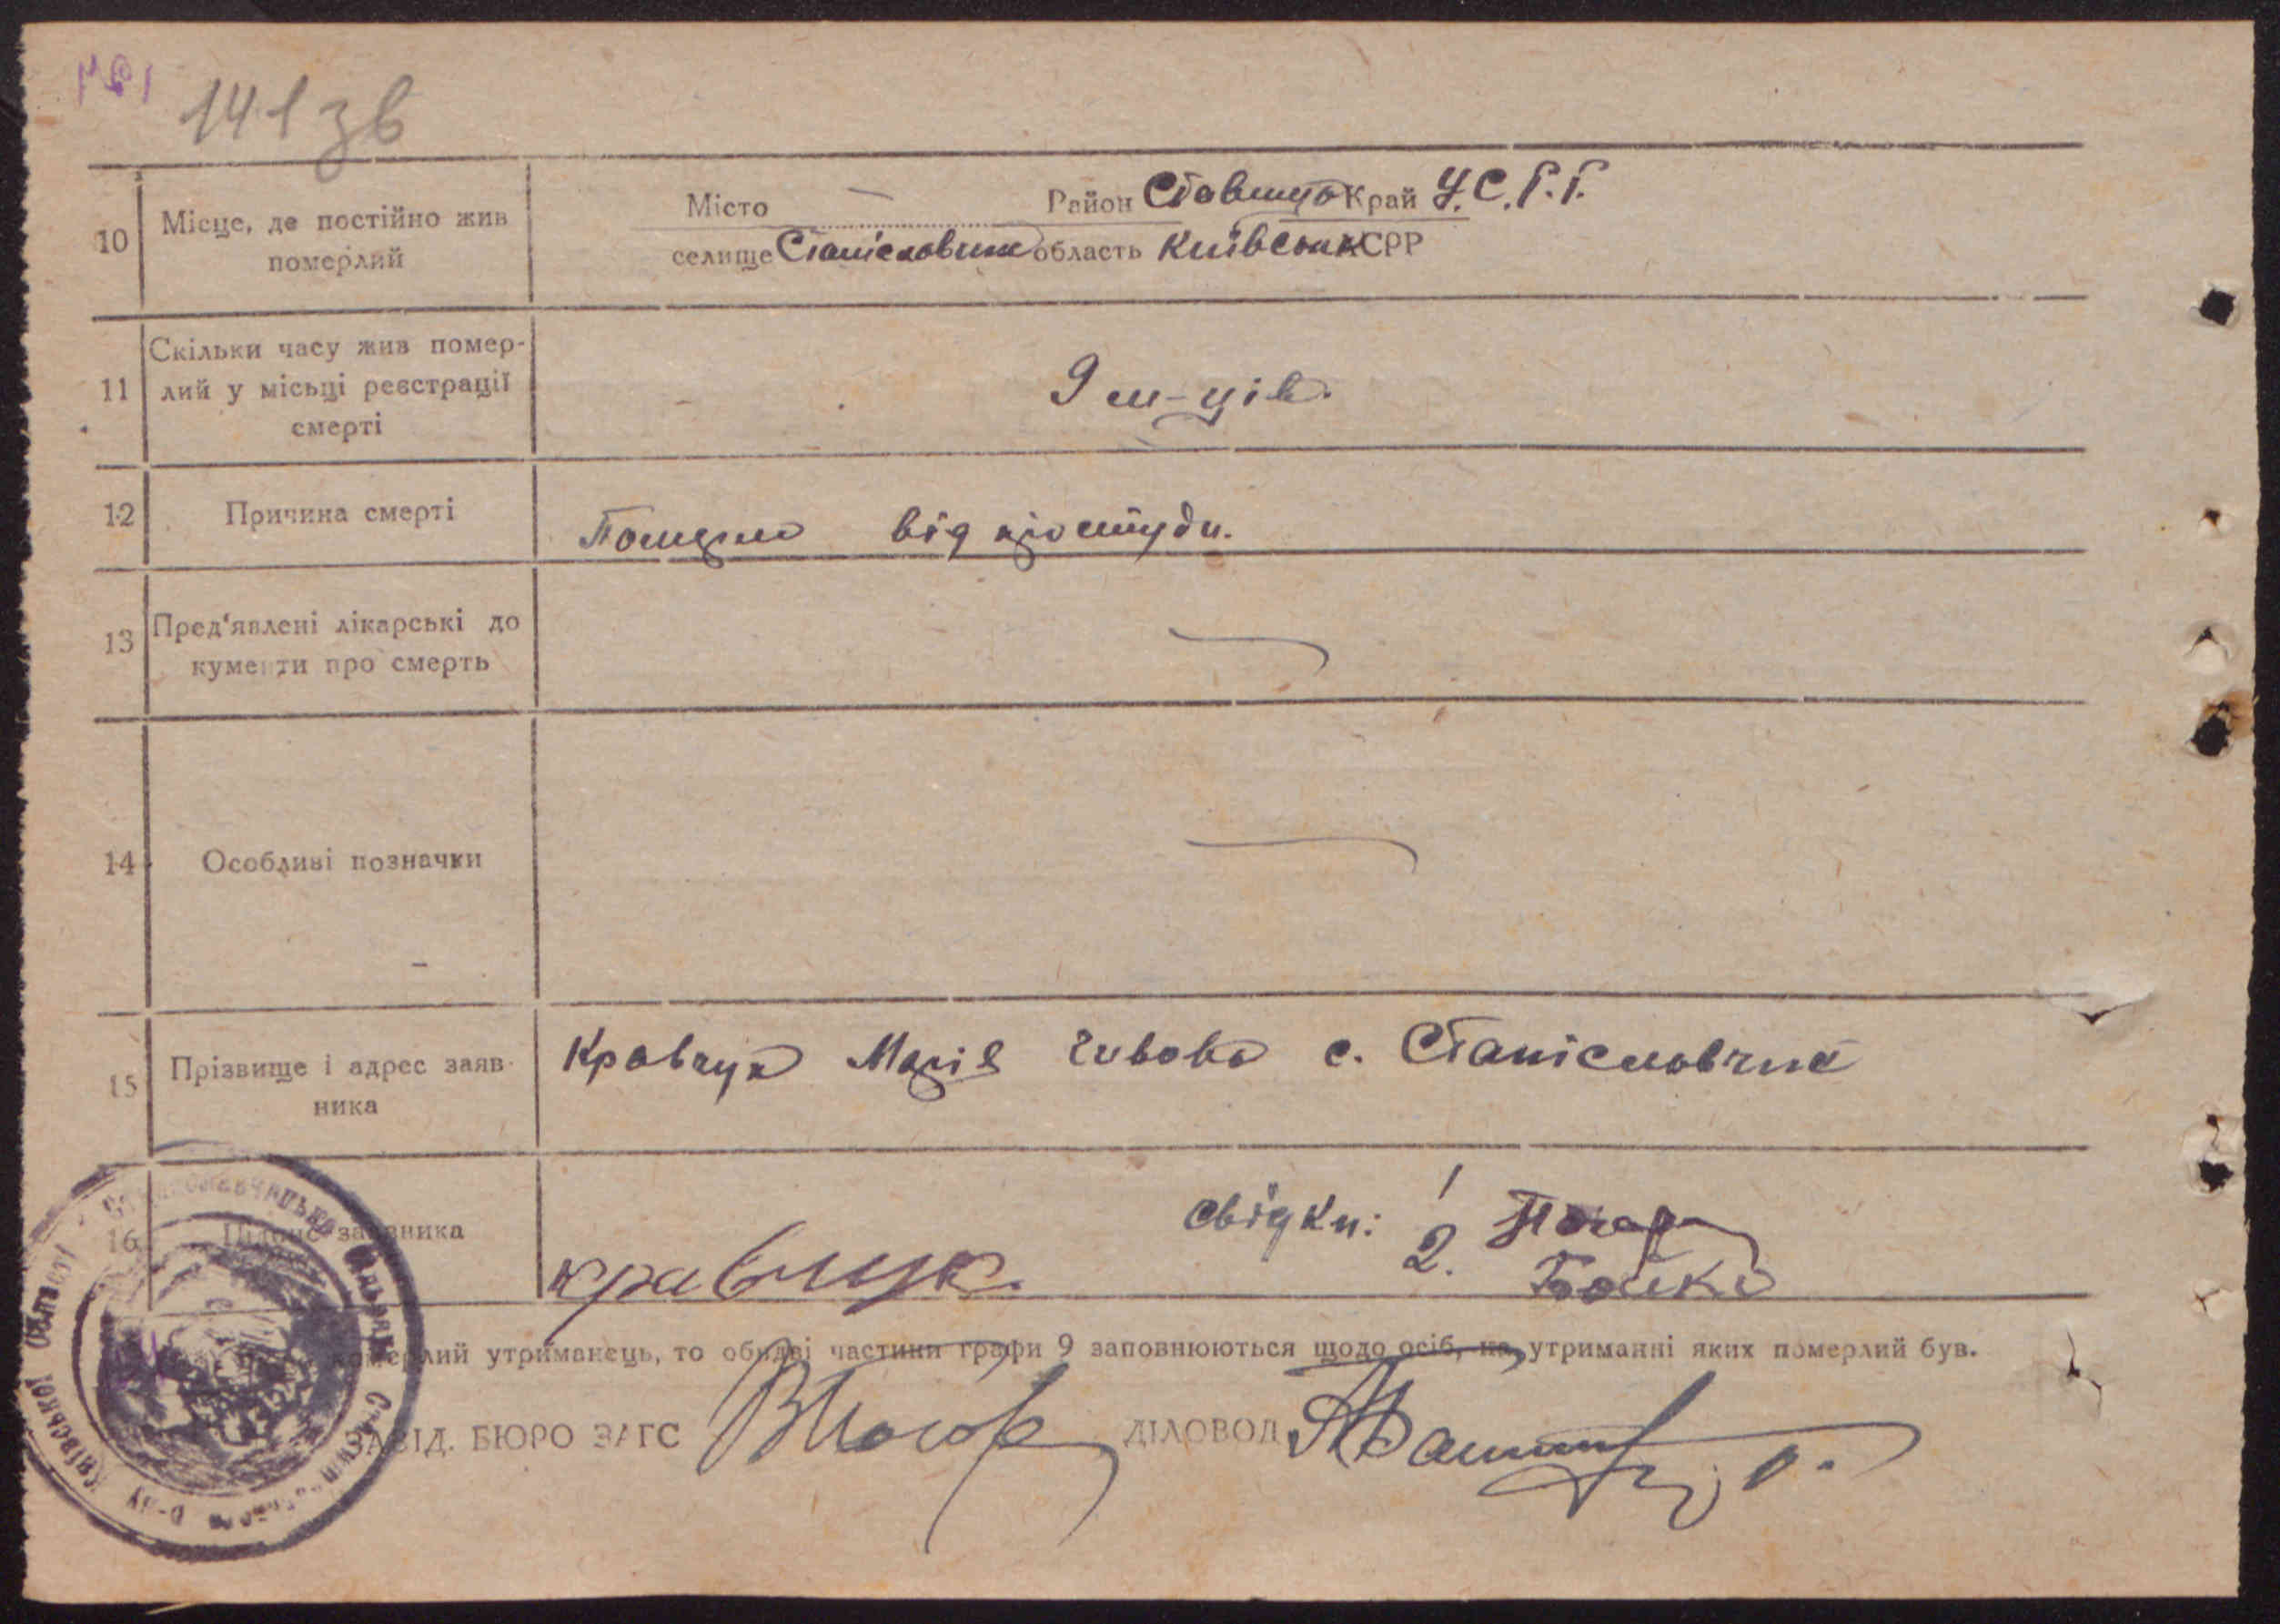 141 зв
Місто — Район Ставище Край У.С.Р.Р.
10 Місце, де постійно жив
померлий
селище Станіславчик область Київськ СРР
Скільки часу жив помер-
11 лий у місьці реєстрації
смерті
9 м-ців.
12 Причина смерті
Померло від простуди.
13 Пред'явлені лікарські до
кументи про смерть
—
14 Особливі позначки
—
15 Прізвище і адрес заяв-
ника
Кравчук Марія с. Станіславчик
16 Підпис заявника
Кравчук.
свідки: 1
2. Бойко
померлий утриманець, то обидві частини графи 9 заповнюються щодо осіб, на утриманні яких померлий був.
ЗАВІД. БЮРО ЗАГС
ДІЛОВОД
Київської Області